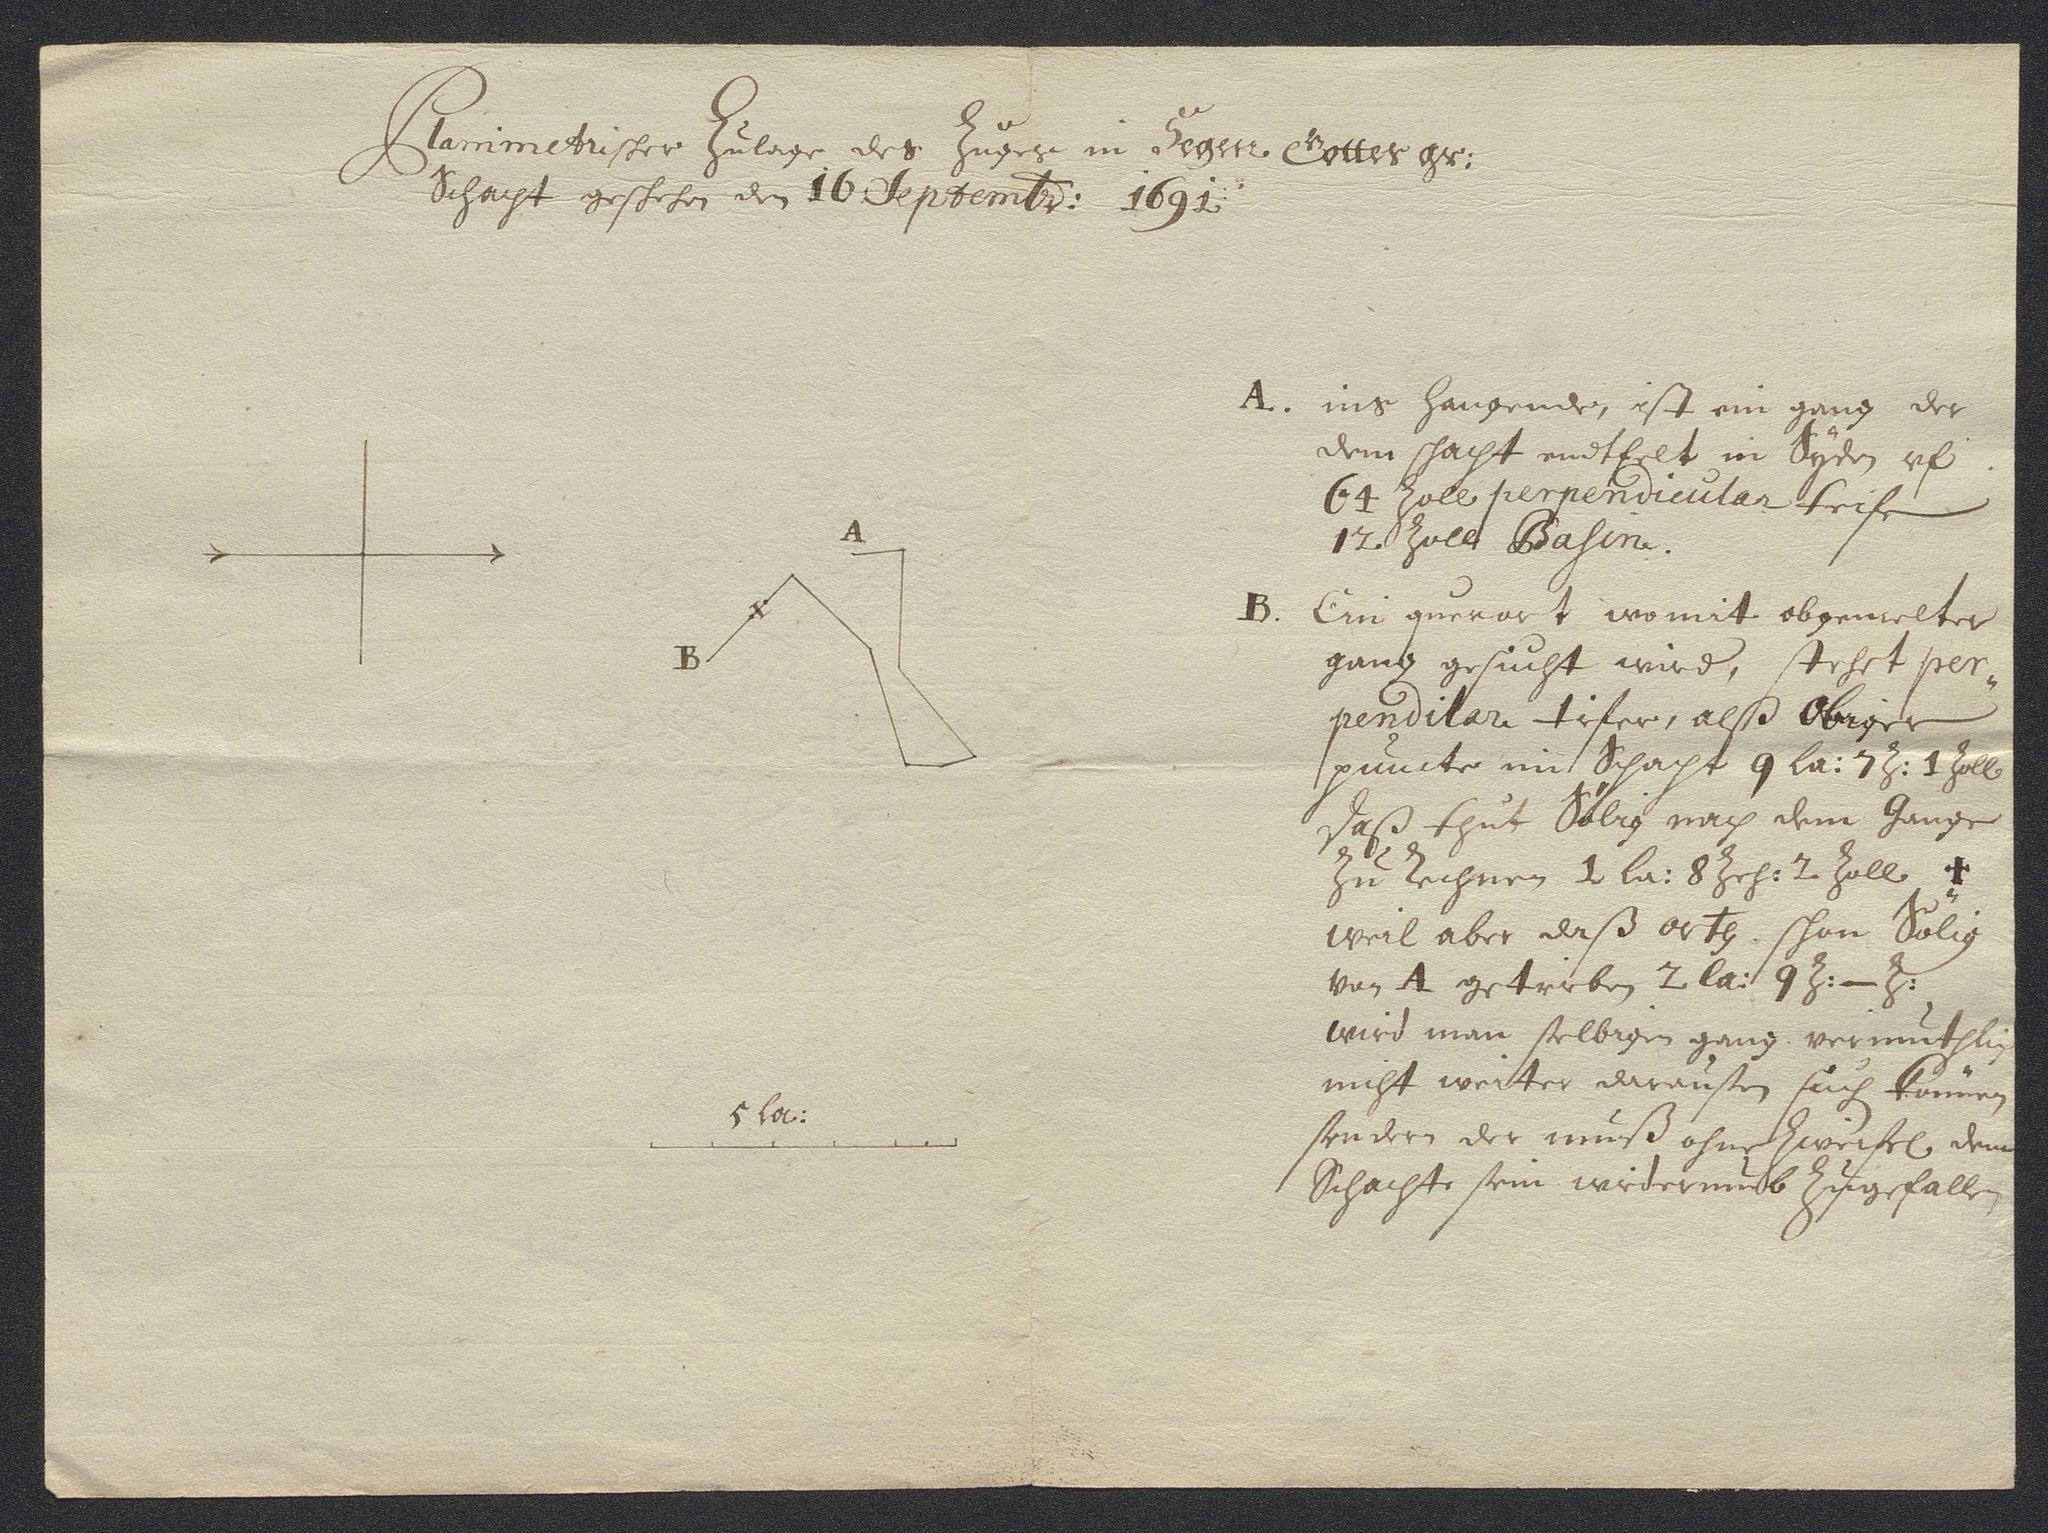 Planimetrischer Zulage des Zuges in Segen Gottes gr:
Schacht geschehen den 16 Septembr: 1691
A. ins hangende, ist ein gang der
dem schacht endtfelt in Syden uf
64 Zoll perpendicular teife
12 Zoll Basin.
B. Ein querort womit obgemelter
gang gesucht wird, stehet per-
pendilar tifer, alß Obiger
puncte im Schacht 9 la: 7 Z: 1 Zoll
daß thut Sölig nach dem Gange
Zu Rechnen 1 la: 8 Zeh: 2 Zoll +
weil aber daß orth schon Sölig
von A getrieben 2 la: 9 Z: — Z:
wird man selbigen gang vermuthlich
nicht weiter daraussen such können
sondern der muß ohne Zweifel dem
Schachte sein widerumb Zugefallen
A
x
B
5 la: